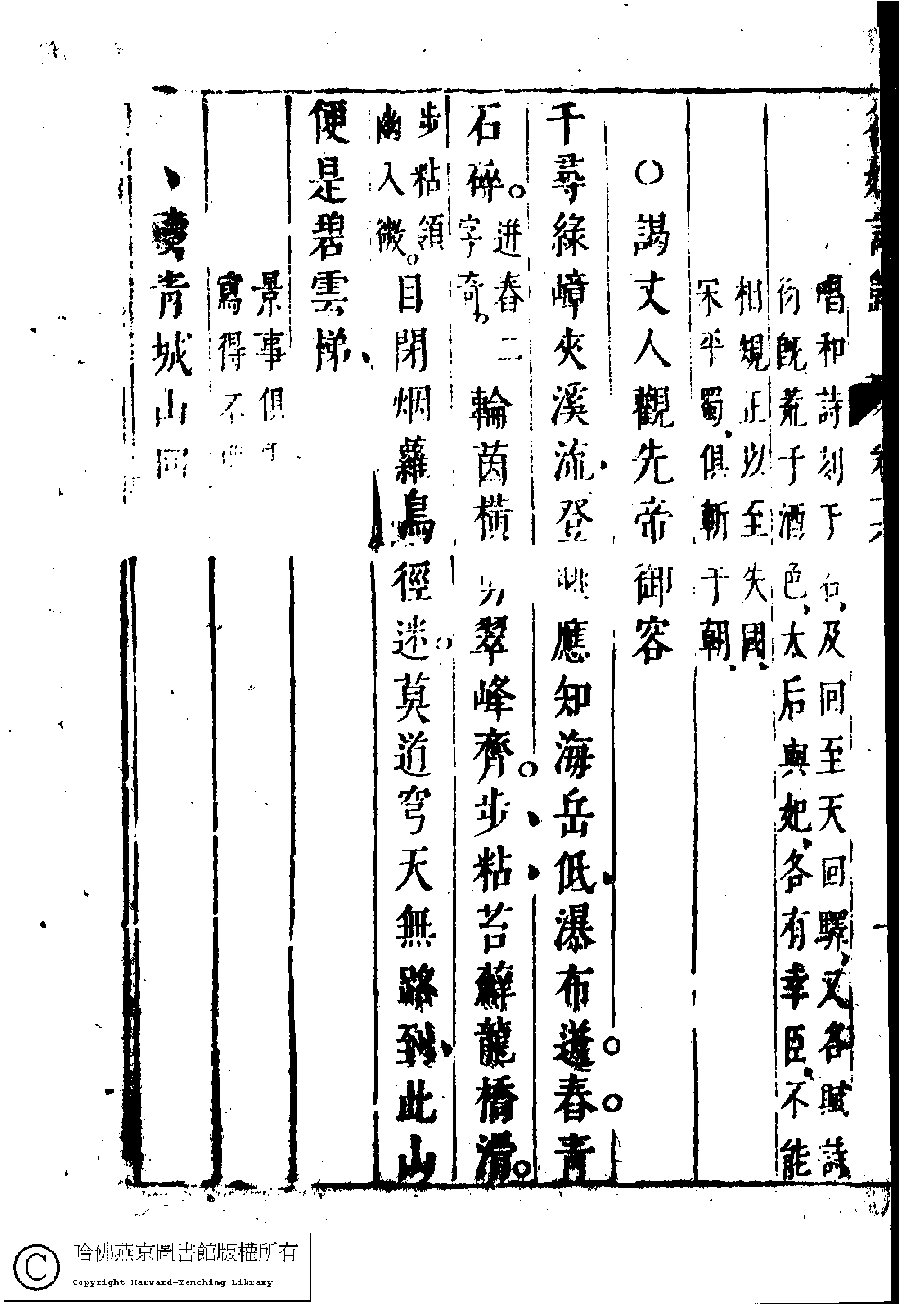 唱和詩刻于石及回至天回驛又各賦詩
衍既荒于酒色太后與妃各有幸臣不能
相規正以至失國
宋平蜀俱斬于朝
○謁丈人觀先帝御容
千尋綠嶂夾溪流登眺應知海岳低瀑布迸舂青
石碎迸舂二
字奇
輪茵橫剪翠峰齊步粘苔蘚龍橋滑
步粘領
幽入微
目閉烟蘿鳥徑迷莫道穹天無路到此山
便是碧雲梯
景事俱
寫得不
青城山回
哈佛燕京圖書館版權所有
Copyright Harvard-Yenching Library